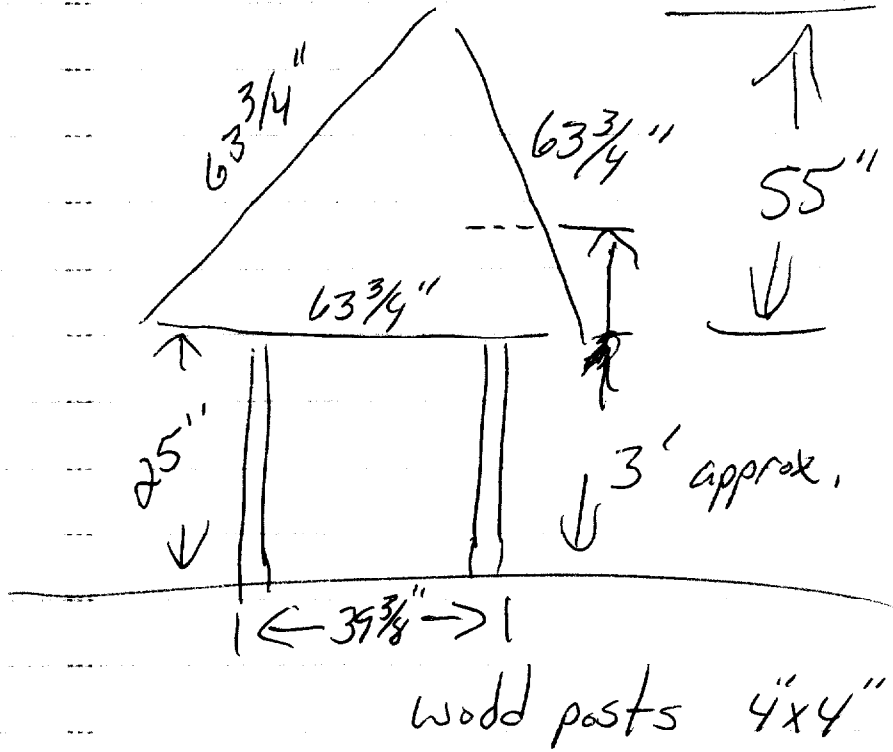 63 3/4"
63 3/4"
55"
63 3/4"
25"
3' approx.
39 3/8"
wodd posts 4"x4"